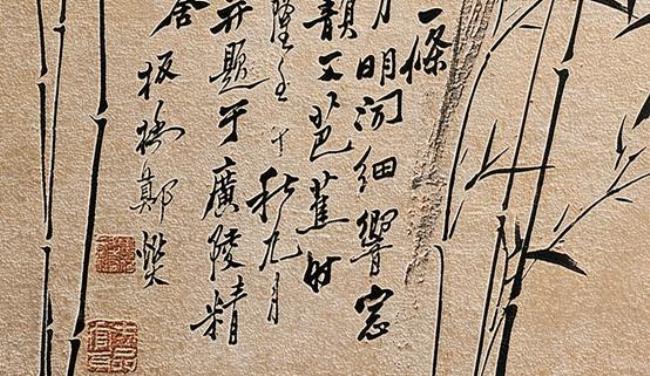 一條
月明聞細響窓
韻芭蕉時
隆壬午秋九月
并題于廣陵精
舍板橋鄭燮